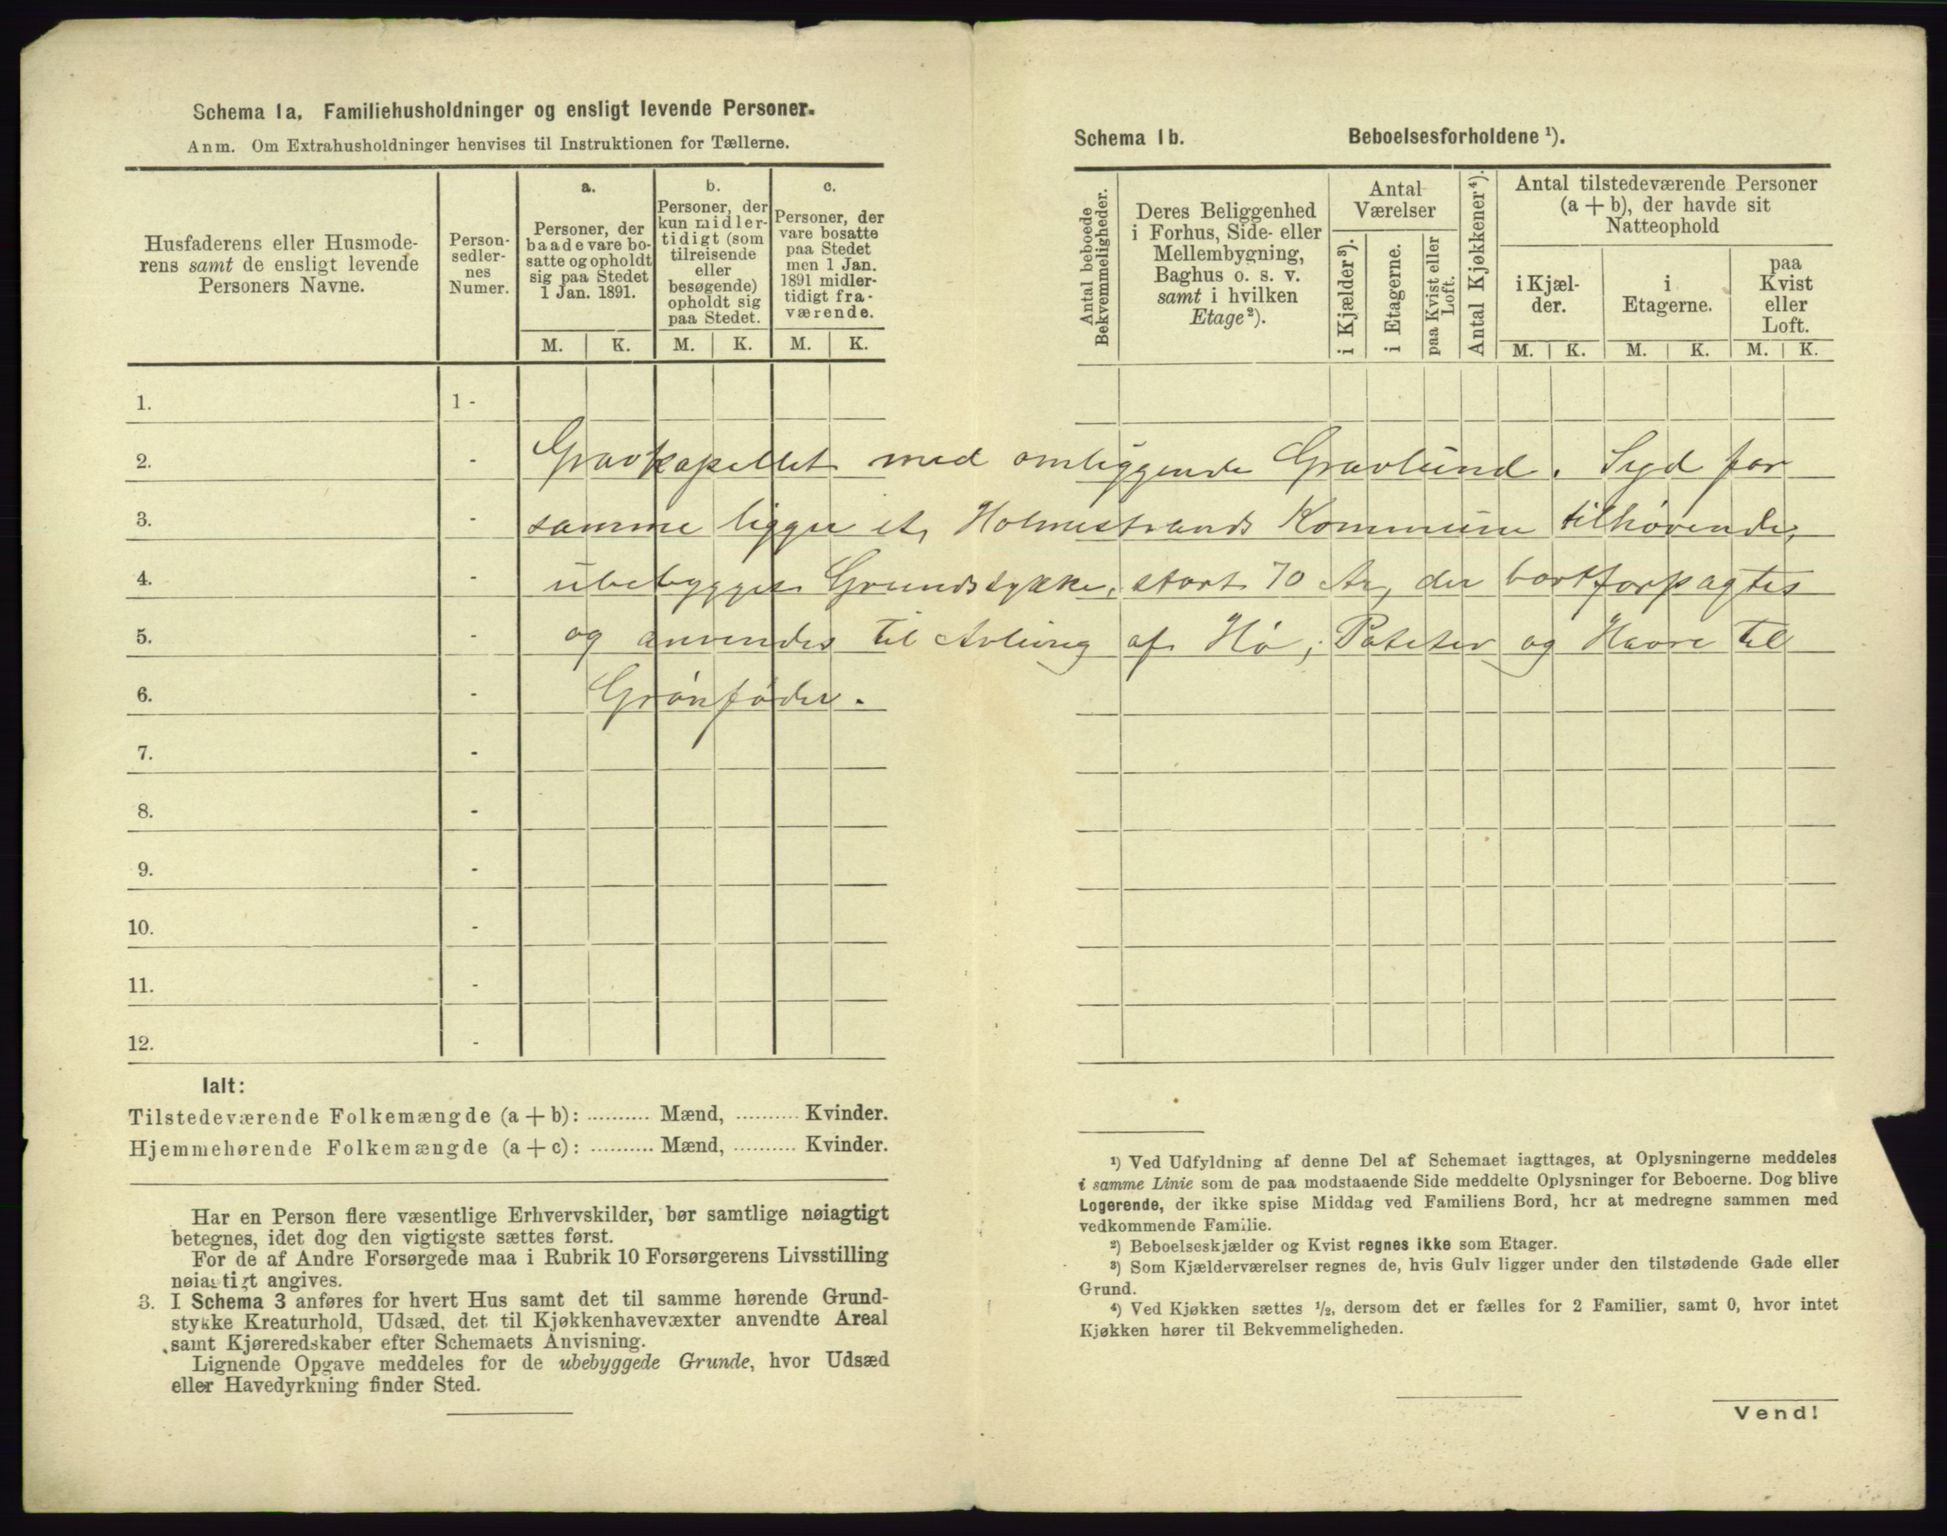 Schema 1a. Familiehusholdninger og ensligt levende Personer.
Anm. Om Extrahusholdninger henvises til Instruktionen for Tællerne.
Husfaderens eller Husmode-
rens samt de ensligt levende
Personers Navne.
Person-
sedler-
nes
Numer.
a.
Personer, der
baade vare bo-
satte og opholdt
sig paa Stedet
1 Jan. 1891.
b.
Personer, der
kun midler-
tidigt (som
tilreisende
eller
besøgende)
opholdt sig
paa Stedet.
c.
Personer, der
vare bosatte
paa Stedet
men 1 Jan.
1891 midler-
tidigt fra-
værende.
M. K. M. K. M. K.
1. 1 -
2. -
3. -
4. -
5. -
6. -
7. -
8. -
9. -
10. -
11. -
12. -
Schema 1b. Beboelsesforholdene ¹).
Antal beboede
Bekvemmeligheder.
Deres Beliggenhed
i Forhus, Side- eller
Mellembygning,
Baghus o. s. v.
samt i hvilken
Etage ²).
Antal
Værelser
i Kjælder ³).
i Etagerne.
paa Kvist eller
Loft.
Antal Kjøkkener ⁴).
Antal tilstedeværende Personer
(a + b), der havde sit
Natteophold
i Kjæl-
der.
i
Etagerne.
paa
Kvist
eller
Loft.
M. K. M. K. M. K.
Gravkapellet med omliggende Gravlund. Syd for
samme ligger et, Holmestrands Kommune tilhørende,
ubebygget Grundstykke, stort 70 Ar, der bortforpagtes
og anvendes til Avling af Hø, Poteter og Havre til
Grønføder.
Ialt:
Tilstedeværende Folkemængde (a + b): .......... Mænd, .......... Kvinder.
Hjemmehørende Folkemængde (a + c): .......... Mænd, .......... Kvinder.
Har en Person flere væsentlige Erhvervskilder, bør samtlige nøiagtigt
betegnes, idet dog den vigtigste sættes først.
For de af Andre Forsørgede maa i Rubrik 10 Forsørgerens Livsstilling
nøiagtigt angives.
3. I Schema 3 anføres for hvert Hus samt det til samme hørende Grund-
stykke Kreaturhold, Udsæd, det til Kjøkkenhavevæxter anvendte Areal
samt Kjøreredskaber efter Schemaets Anvisning.
Lignende Opgave meddeles for de ubebyggede Grunde, hvor Udsæd
eller Havedyrkning finder Sted.
¹) Ved Udfyldning af denne Del af Schemaet iagttages, at Oplysningerne meddeles
i samme Linie som de paa modstaaende Side meddelte Oplysninger for Beboerne. Dog blive
Logerende, der ikke spise Middag ved Familiens Bord, her at medregne sammen med
vedkommende Familie.
²) Beboelseskjælder og Kvist regnes ikke som Etager.
³) Som Kjælderværelser regnes de, hvis Gulv ligger under den tilstødende Gade eller
Grund.
⁴) Ved Kjøkken sættes ½, dersom det er fælles for 2 Familier, samt 0, hvor intet
Kjøkken hører til Bekvemmeligheden.
Vend!